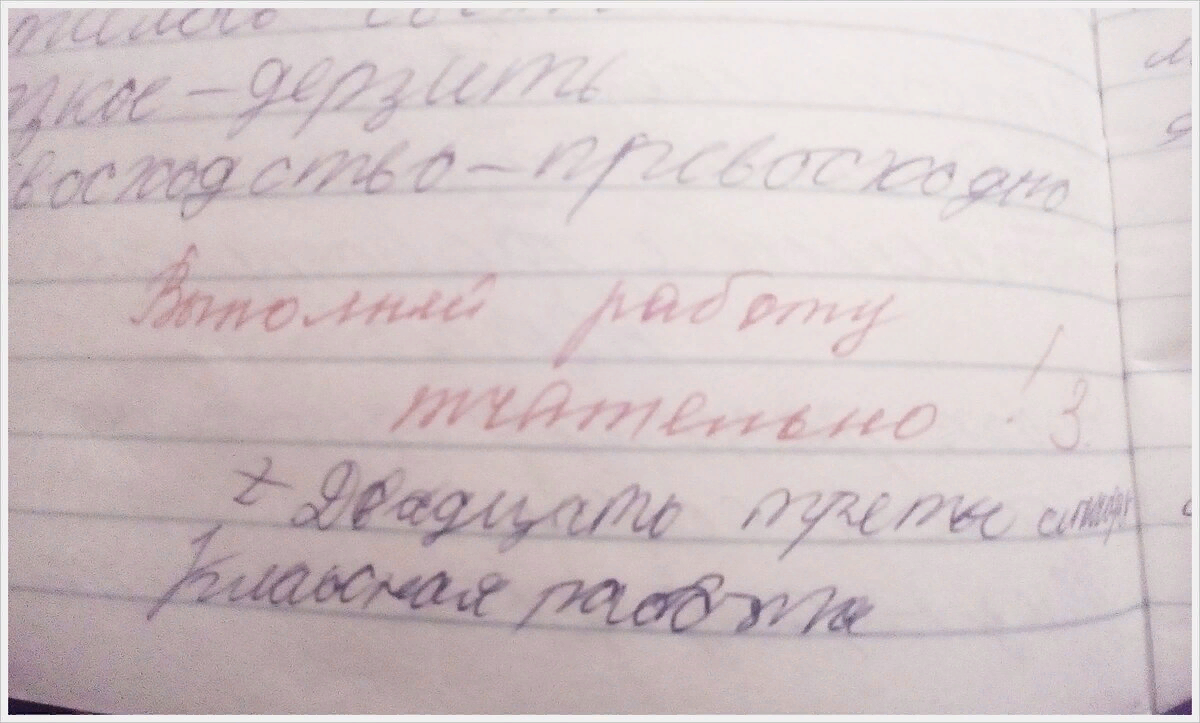 дерзить
восходство – превосходно
Выполняй работу
тчательно! 3.
Двадцать третье
Классная работа